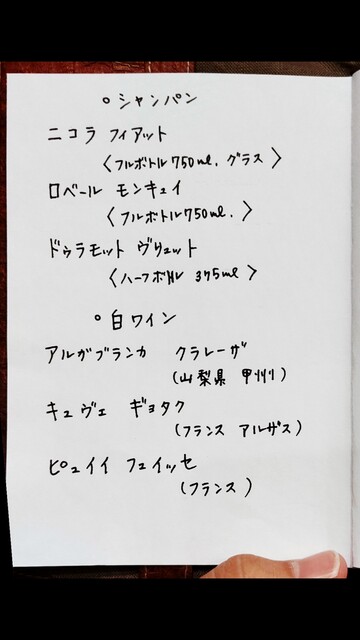 ○シャンパン
ニコラ フィアット
〈フルボトル750ml. グラス〉
ロベール モンキュイ
〈フルボトル750ml.〉
ドゥラモット ヴリュット
〈ハーフボトル 375ml〉
○白ワイン
アルガブランカ クラレーザ
(山梨県 甲州)
キュヴェ ギョタク
(フランス アルザス)
ピュイイ フュイッセ
(フランス)